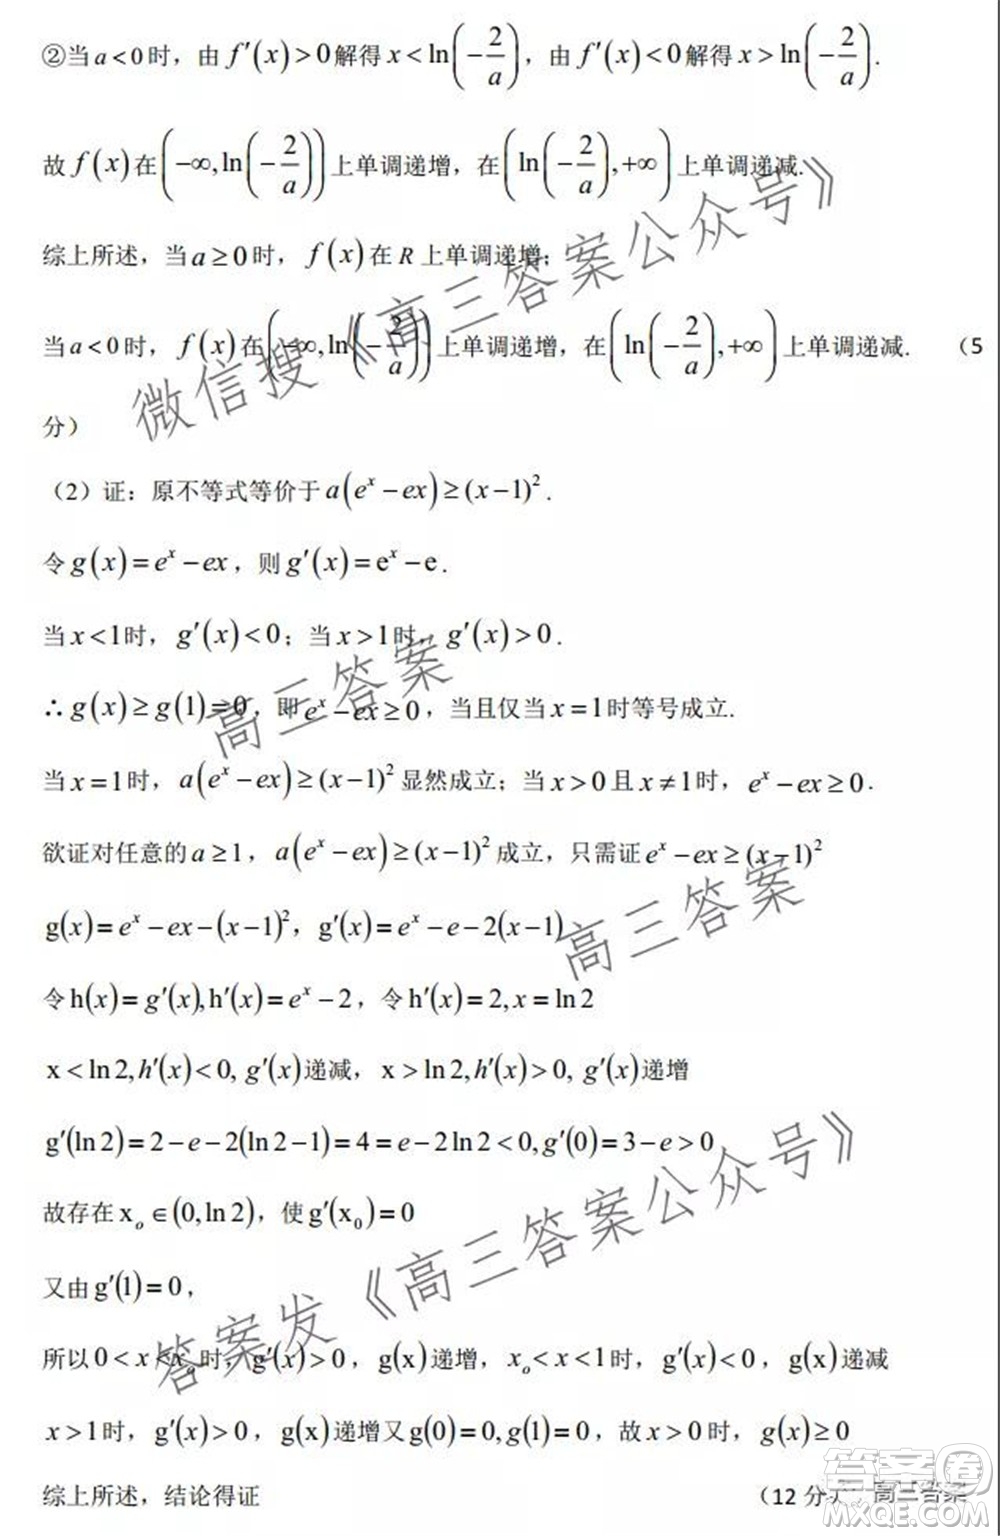 ②当a<0时，由f′(x)>0解得x<ln(−2/a)，由f′(x)<0解得x>ln(−2/a).
故f(x)在(−∞,ln(−2/a))上单调递增，在(ln(−2/a),+∞)上单调递减.
综上所述，当a≥0时，f(x)在R上单调递增；
当a<0时，f(x)在(−∞,ln(−2/a))上单调递增，在(ln(−2/a),+∞)上单调递减. （5
分）
（2）证：原不等式等价于a(eˣ−ex)≥(x−1)².
令g(x)=eˣ−ex，则g′(x)=eˣ−e.
当x<1时，g′(x)<0；当x>1时，g′(x)>0.
∴g(x)≥g(1)=0，即eˣ−ex≥0，当且仅当x=1时等号成立.
当x=1时，a(eˣ−ex)≥(x−1)²显然成立；当x>0且x≠1时，eˣ−ex≥0.
欲证对任意的a≥1，a(eˣ−ex)≥(x−1)²成立，只需证eˣ−ex≥(x−1)²
g(x)=eˣ−ex−(x−1)²，g′(x)=eˣ−e−2(x−1)
令h(x)=g′(x),h′(x)=eˣ−2，令h′(x)=2,x=ln2
x<ln2,h′(x)<0, g′(x)递减，x>ln2,h′(x)>0, g′(x)递增
g′(ln2)=2−e−2(ln2−1)=4=e−2ln2<0,g′(0)=3−e>0
故存在xₒ∈(0,ln2)，使g′(x₀)=0
又由g′(1)=0，
所以0<x<xₒ时，g′(x)>0，g(x)递增，xₒ<x<1时，g′(x)<0，g(x)递减
x>1时，g′(x)>0，g(x)递增又g(0)=0,g(1)=0，故x>0时，g(x)≥0
综上所述，结论得证 （12分）
微信搜《高三答案公众号》
高三答案
高三答案
答案发《高三答案公众号》
高三答案
答案卷